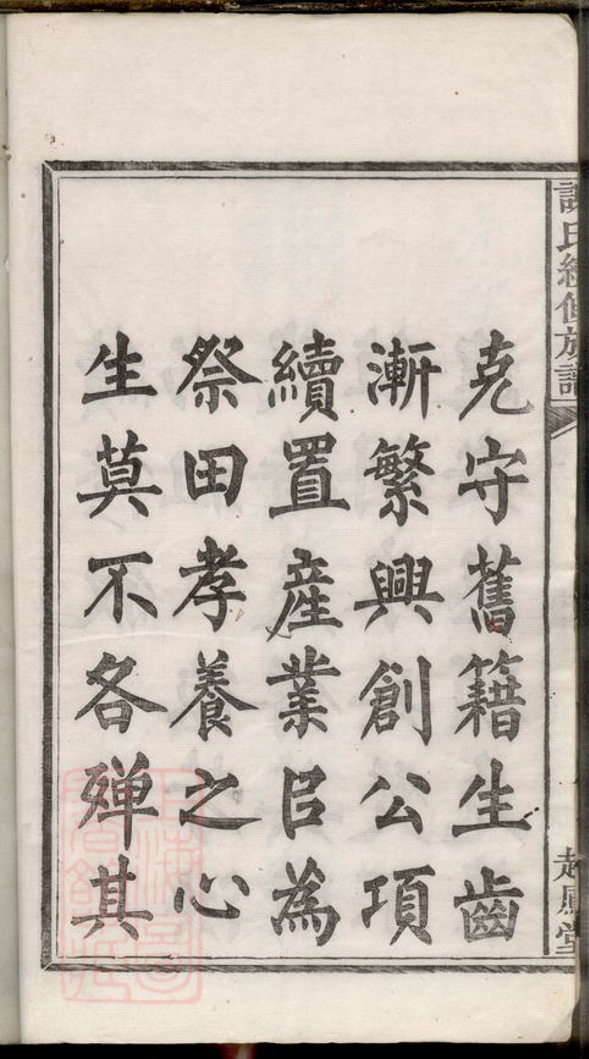 譚氏續修族譜
起鳳堂
克守舊籍生齒
漸繁興創公項
續置產業㠯為
祭田孝養之心
生莫不各殫其